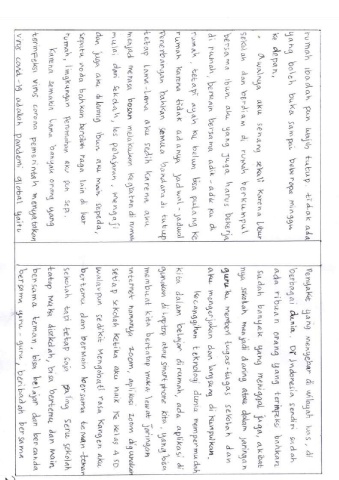 rumah ibadah pun wajib tutup tidak ada
yang boleh buka sampai beberapa minggu
ke depan.
Awalnya aku senang sekali karena libur
sekolah dan berdiam di rumah berkumpul
bersama ibun aku yang juga harus bekerja
di rumah, bermain bersama adik-adik ku di
rumah, tetapi ayah ku belum bisa pulang ke
rumah karena tidak adanya jadwal-jadwal
Penerbangan bahkan semua bandara di tutup
tetapi lama-lama aku sedih karena aku
menjadi merasa bosan melakukan kegiatan di rumah
mulai dari sekolah, les pelajaran, mengaji
dan juga aku dilarang ibun aku naik sepeda,
sepatu roda bahkan berdiam naga luar di luar
rumah, lingkungan Perumahan aku pun sepi.
Karena semakin lama banyak orang yang
terinfeksi virus corona pemerintah mengatakan
virus covid-19 adalah pandemi global yaitu
Penyakit yang menyebar di wilayah luas, di
berbagai dunia. Di Indonesia sendiri sudah
ada ribuan orang yang terinfeksi bahkan
sudah banyak yang meninggal juga, akibat
nya sekolah menjadi daring atau dalam jaringan
guru ku memberi tugas-tugas sekolah dan
aku mengerjakan dan langsung di kumpulkan
Kecanggihan teknologi dunia mempermudah
kita dalam belajar dirumah, ada aplikasi di
gunakan di laptop atau smartphone kita, yang bisa
membuat kita bertatap muka lewat jaringan
internet namanya zoom, aplikasi zoom digunakan
setiap sekolah ketika aku naik ke kelas 4 SD
walaupun sedikit mengobati rasa kangen aku
bertemu dan bermain bersama teman-teman
sekolah tapi tetap saja paling seru sekolah
tatap muka disekolah, bisa bertemu dan main
bersama teman, bisa belajar dan bercanda
bersama guru-guru, beribadah bersama